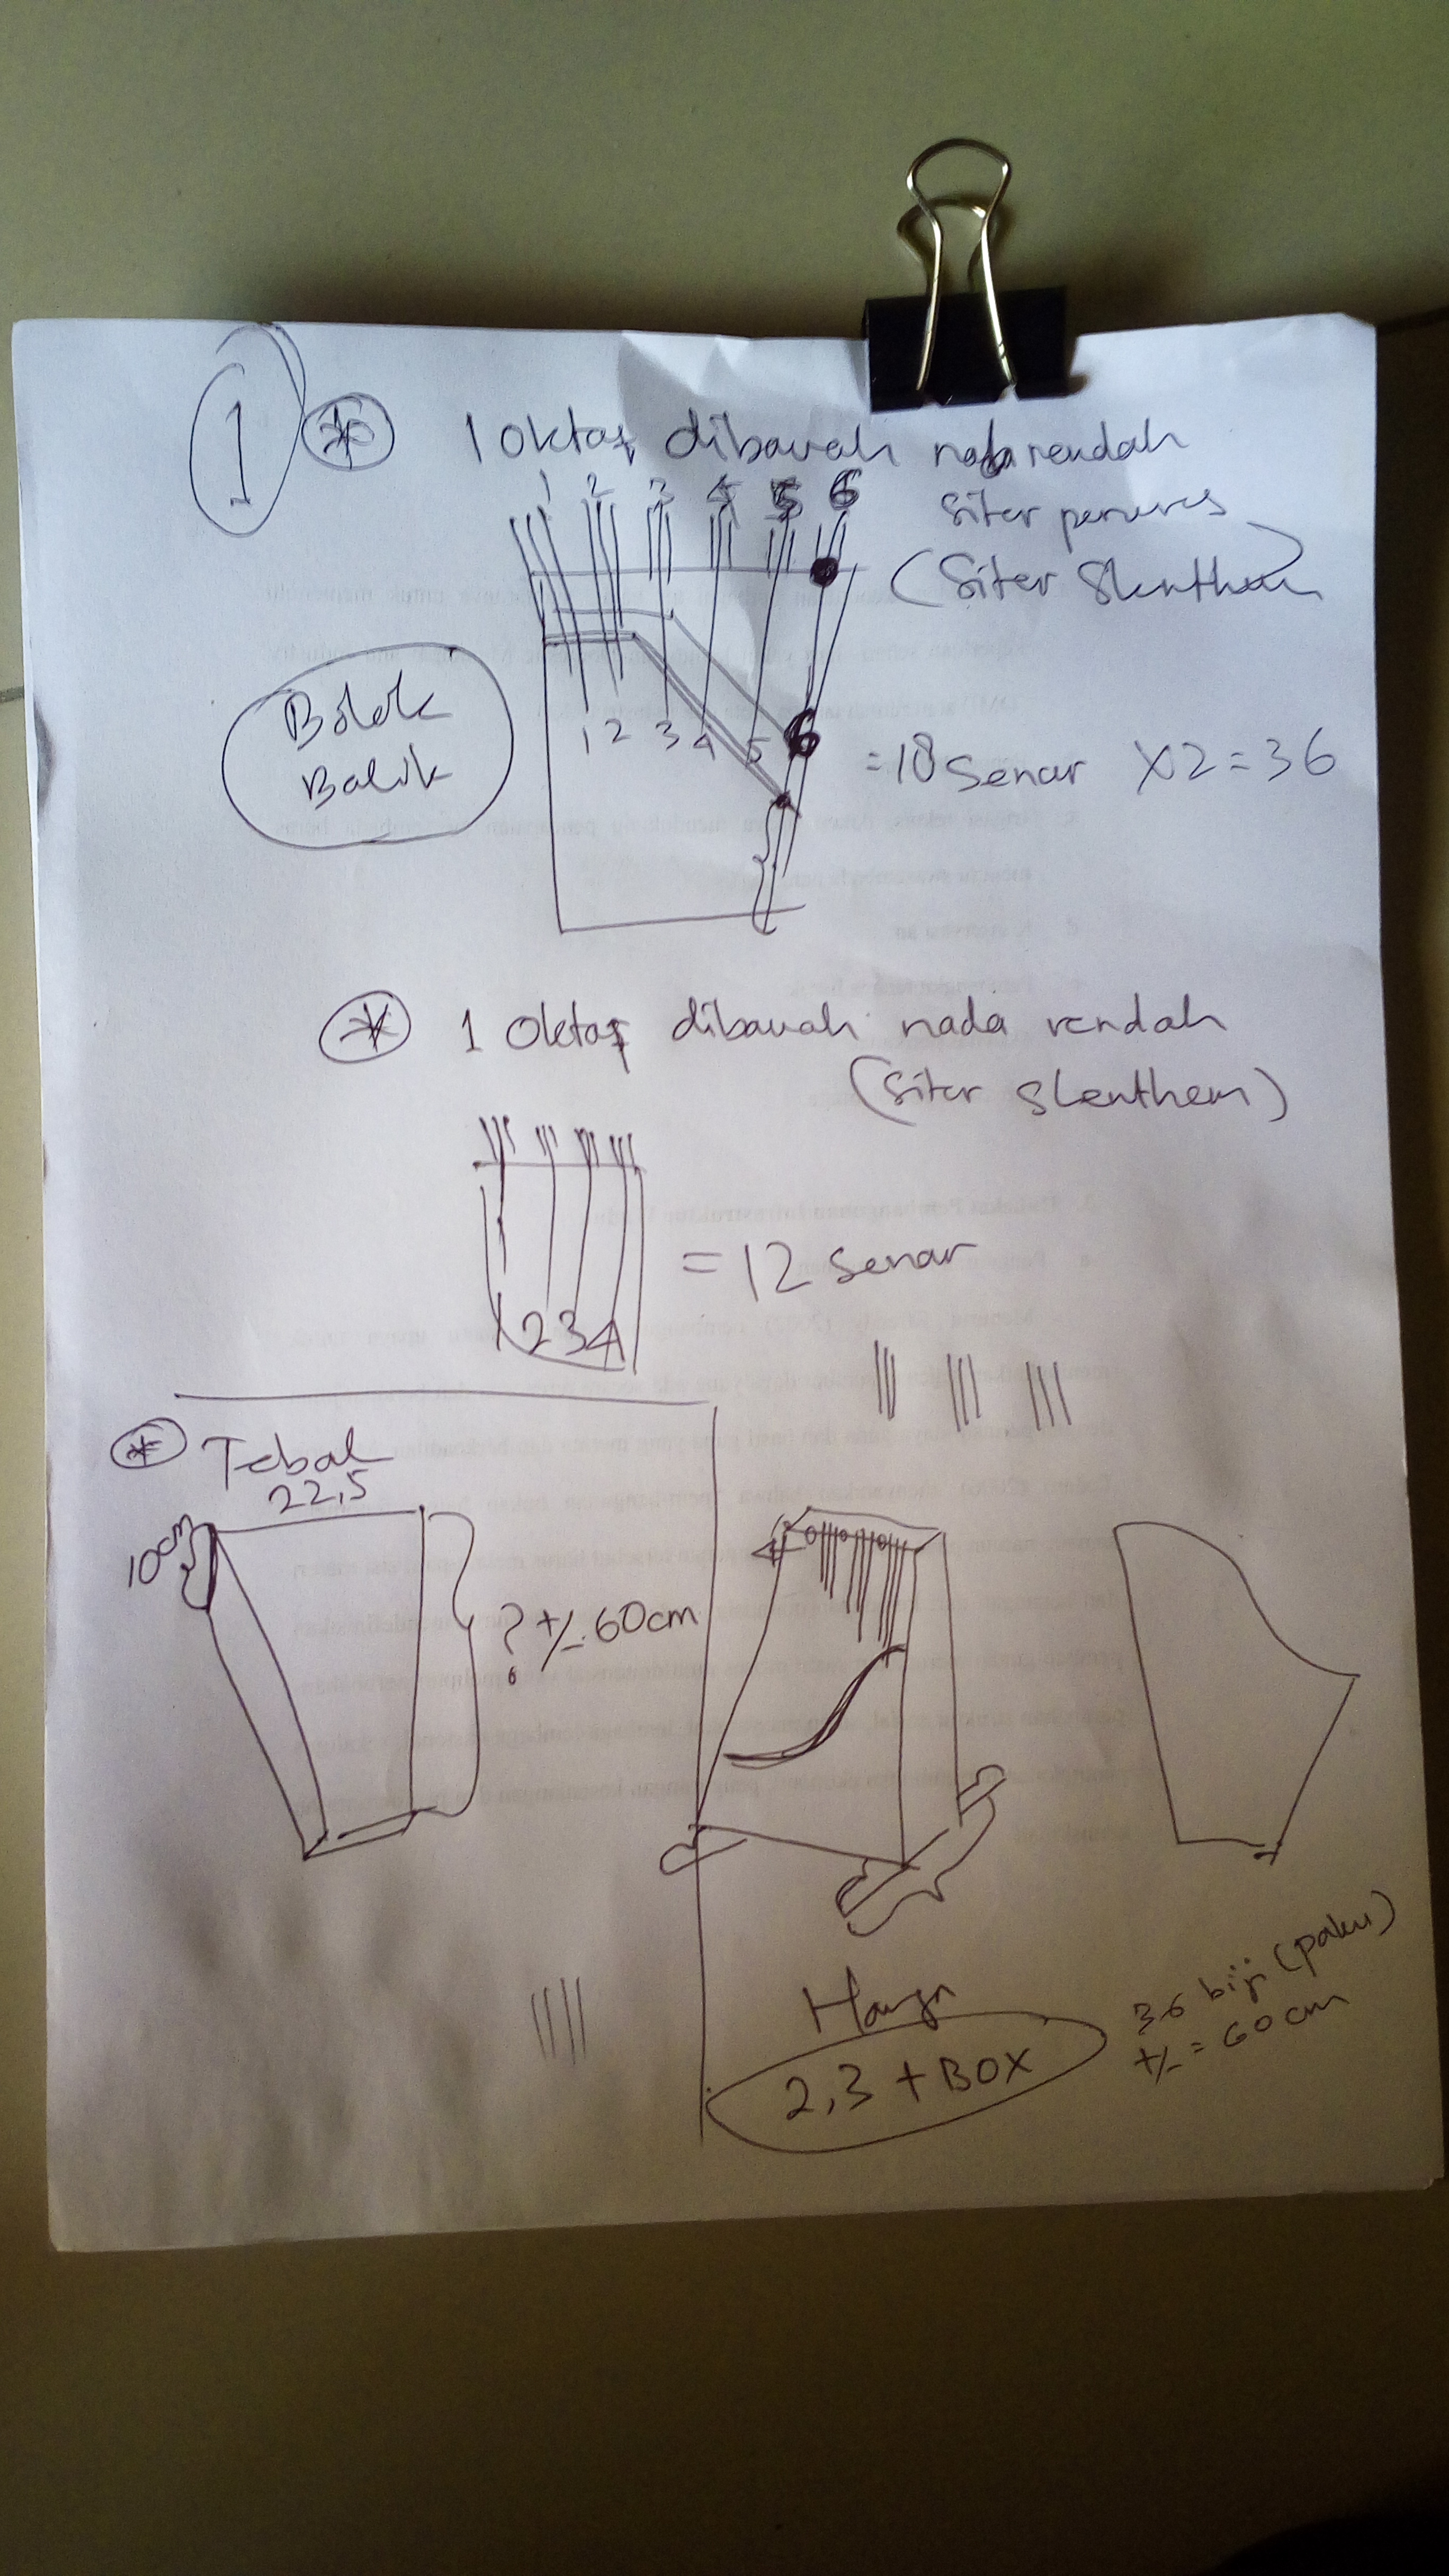 1
1 Oktaf dibawah nada rendah
siter penerus
(Siter Slenthem
1 2 3 4 5 6
Bolak
Balik
1 2 3 4 5 6
= 18 Senar X2 = 36
1 Oktaf dibawah nada rendah
(Siter Slenthem)
= 12 Senar
1 2 3 4
Tebal
22,5
10 cm
? +/- 60 cm
36 biji (paku)
+/- = 60 cm
2,3 + BOX